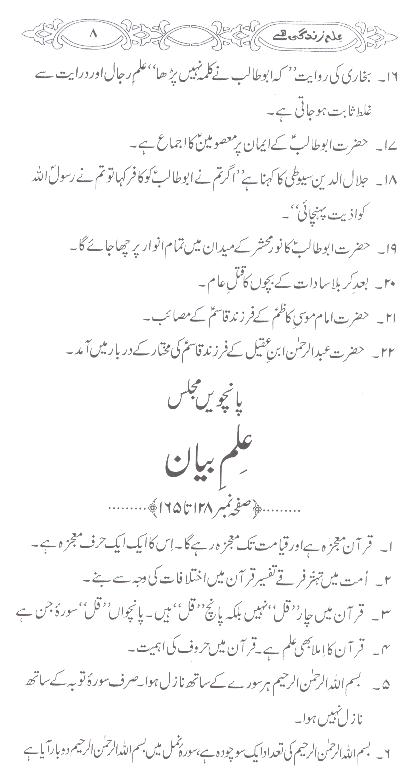 علم زندگی ہے ۸
۱۶۔ بخاری کی روایت ’’کہ ابو طالب نے کلمہ نہیں پڑھا‘‘ علمِ رجال اور درایت سے
غلط ثابت ہو جاتی ہے۔
۱۷۔ حضرت ابو طالبؑ کے ایمان پر معصومینؑ کا اجماع ہے۔
۱۸۔ جلال الدین سیوطی کا کہنا ہے ’’اگر تم نے ابو طالبؑ کو کافر کہا تو تم نے رسولؐ اللہ
کو اذیت پہنچائی‘‘۔
۱۹۔ حضرت ابو طالبؑ کا نور محشر کے میدان میں تمام انوار پر چھا جائے گا۔
۲۰۔ بعدِ کربلا سادات کے بچوں کا قتلِ عام۔
۲۱۔ حضرت امام موسیٰ کاظمؑ کے فرزند قاسمؑ کے مصائب۔
۲۲۔ حضرت عبدالرحمٰن ابنِ عقیلؑ کے فرزند قاسمؑ کی مختار کے دربار میں آمد۔
پانچویں مجلس
علمِ بیان
.........﴿صفحہ نمبر ۱۲۸ تا ۱۶۵﴾.........
۱۔ قرآن معجزہ ہے اور قیامت تک معجزہ رہے گا۔ اِس کا ایک ایک حرف معجزہ ہے۔
۲۔ اُمت میں تہتر فرقے تفسیرِ قرآن میں اختلافات کی وجہ سے بنے۔
۳۔ قرآن میں چار ’’قل‘‘ نہیں بلکہ پانچ ’’قل‘‘ ہیں۔ پانچواں ’’قل‘‘ سورۂ جن ہے
۴۔ قرآن کا اِملا بھی علم ہے۔ قرآن میں حروف کی اہمیت۔
۵۔ بسم اللہ الرحمٰن الرحیم ہر سورے کے ساتھ نازل ہوا۔ صرف سورۂ توبہ کے ساتھ
نازل نہیں ہوا۔
۶۔ بسم اللہ الرحمٰن الرحیم کی تعداد ایک سو چودہ ہے، سورۂ نمل میں بسم اللہ الرحمٰن الرحیم دو بار آیا ہے